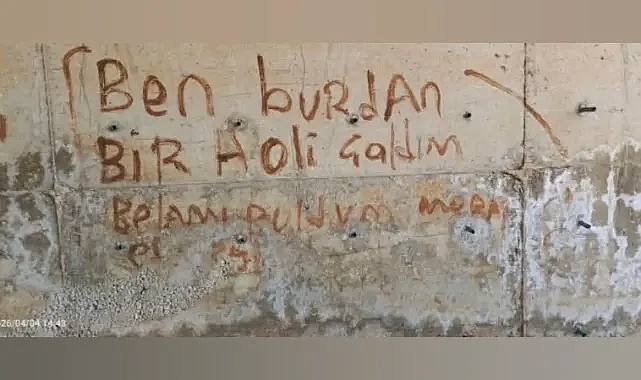 Ben burdAn
BiR Holi Galdım
Belamı buldum
26/04/04 14:43